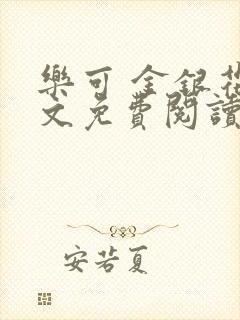 樂可 金銀花
文免費閱讀
安若夏